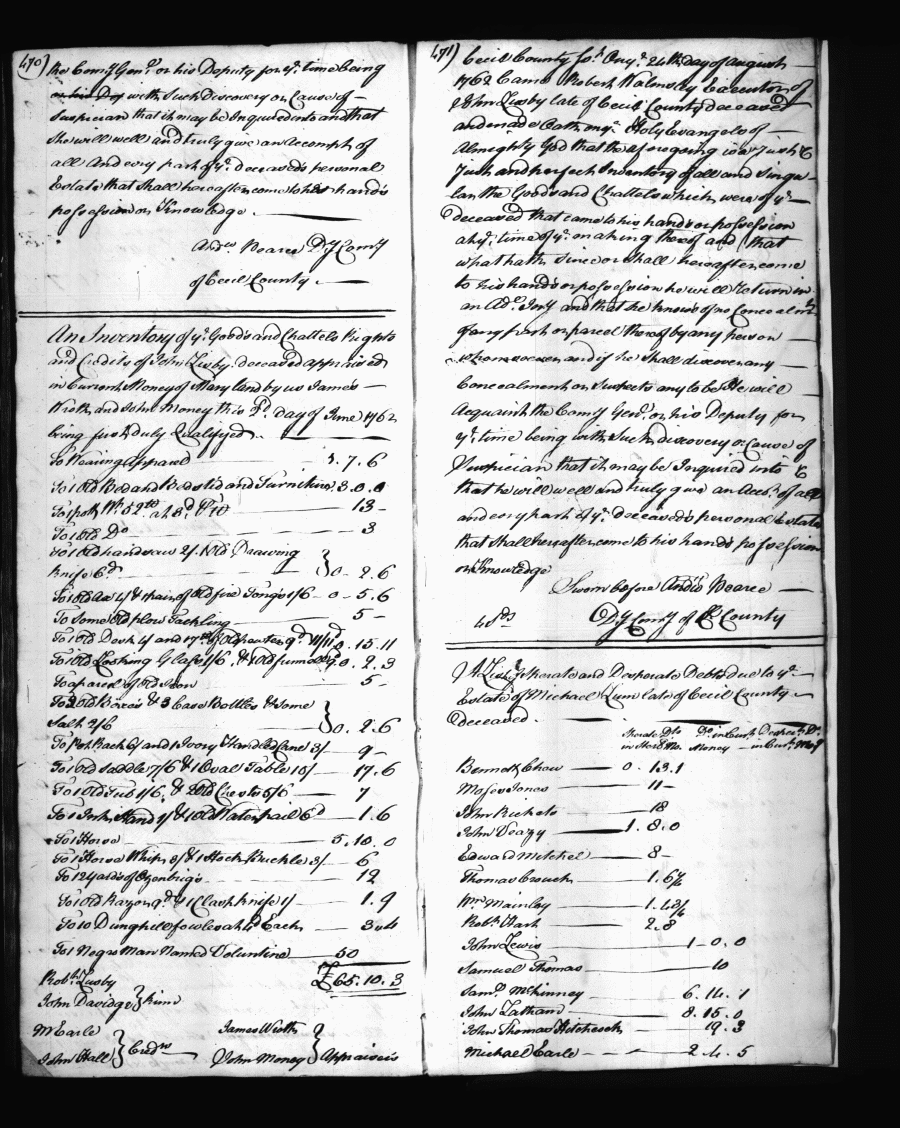 470)
the Comy. Genl. or his Deputy for ye. time being
or his Dep with such discovery or Cause of
Suspician that it may be Inquired into and that
she will well and truly give an Accompt. of
all And every part of ye. deceased's personal
Estate that Shall hereafter come to her hand's
possession or Knowledge.
Andw. Pearce Dy Comy
of Cecil County
An Inventory of ye. Goods and Chattels Rights
and Credits of John Lusby deceased appraised
in Current Money of Maryland by us James
Wroth and John Money this day of June 1762
being first duly Qualifyed.
To Wearing apparel 3.7.6
To 1 Old Bed and Bedstid and Furniture 3.0.0
To 1 pott Wt. 52 at 3d 13
To 1 Old Do 3
To 1 Old handsaw 2/. 1 Old Drawing
knife 6d } 0.2.6
To 1 Old Ax 4/ & 1 pair of Old fire Tongs 1/6 0.5.6
To Some Old plow Tackling 5
To 1 Old Desk 4/ and 17 Old pewter 9d 11/11 0.15.11
To 1 Old Looking Glass 1/6 & 1 Old funnell 9d 0.2.3
To a parcel of old Iron 5
To 3 Old Boxes & 3 Case Bottles & Some
Salt 2/6 } 0.2.6
To Pot Rack 6/ and 1 Ivory Handled Cane 3/ 9
To 1 Old Saddle 7/6 & 1 Oval Table 10/ 17.6
To 1 Old Tub 1/6, & 2 Old Chests 5/6 7
To 1 Ink Stand 1/ & 1 Old Water pail 6d 1.6
To 1 Horse 5.10.0
To 1 Horse Whip 3/ & 1 Stock Buckle 3/ 6
To 12 Yards of Ozenbrigs 12
To 1 Old Razor 9d & 1 Clasp knife 1/ 1.9
To 10 Dunghill fowles at 4d Each 3.4
To 1 Negro Man Named Voluntine 50
£65.10.3
Robt. Lusby
John Davidge } kinn
M Earle
John Hall } Credrs
James Wroth
John Money } Appraisers
471)
Cecil County Sst. Augt. 24th day of August
1762 Came Robert Walmsley Executor of
John Lusby late of Cecil County deceased
and made Oath on ye. Holy Evangels of
Almighty God that the afore going is a Just &
Just and perfect Inventory of all and Singu-
lar the Goods and Chattels which were of ye.
deceased that came to his hand's or possession
at ye. time of ye. making thereof and that
what hath Since or Shall hereafter come
to his hand's or possession he will return in
an Adl. Invy and that he knows of no Concealmt.
of any part or parcel thereof by any person
whomsoever and if he Shall discover any
Concealment or Suspects any to be He will
Acquaint the Comy Genl. or his Deputy for
ye. time being with Such discovery or Cause of
Suspician that it may be Inquired into &
that he will well and truly give an Acct. of all
and every part of ye. deceased's personal Estate
that Shall hereafter come to his hand's possession
or Knowledge
Sworn before Andw. Pearce
Dy Comy of Cl County
A List of Sperate and Desperate Debts due to ye.
Estate of Michael Lum late of Cecil County
deceased.
Sperate Dts in Sterl Mo. Do. in Curt Money Desperte Dts in Curt. Mony
Bennett Chew 0.13.1
Moses Jones 11
John Rickets 18
John Veazy 1.8.0
Edward Mitchel 8
Thomas Crouch 1.6½
Mr Mainley 1.4
Robt. Hart 2.8
John Lewis 1.0.0
Samuel Thomas 10
Saml. McKinney 6.14.1
John Latham 8.15.0
John Thomas Hitchcock 19.3
Michael Earle 2.4.5